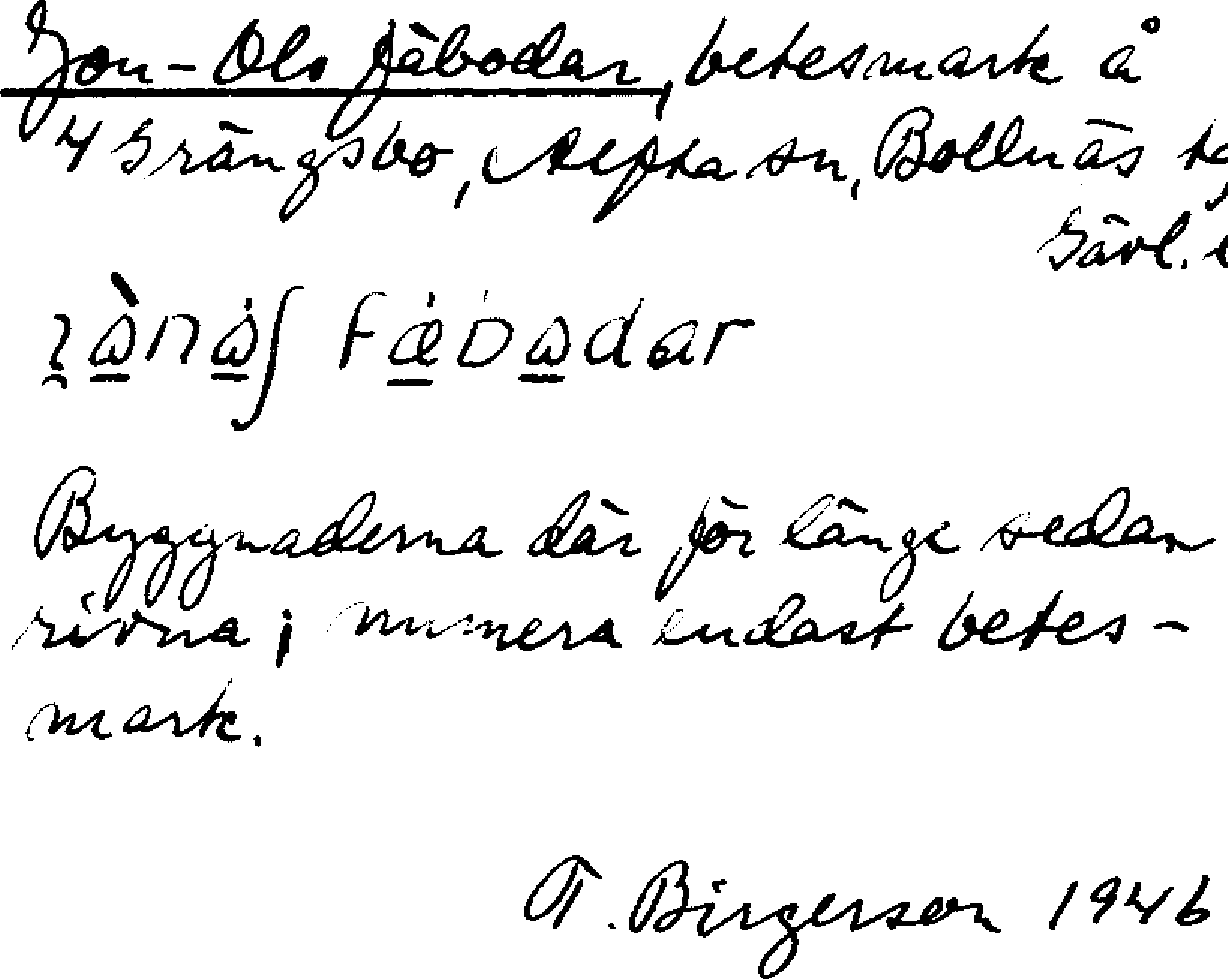 Jon-Ols fäbodar, betesmark å
4 Grängsbo, Alfta sn, Bollnäs
Gävl.
Byggnaderna där för länge sedan
rivna; numera endast betes-
mark.
T. Birgerson 1946